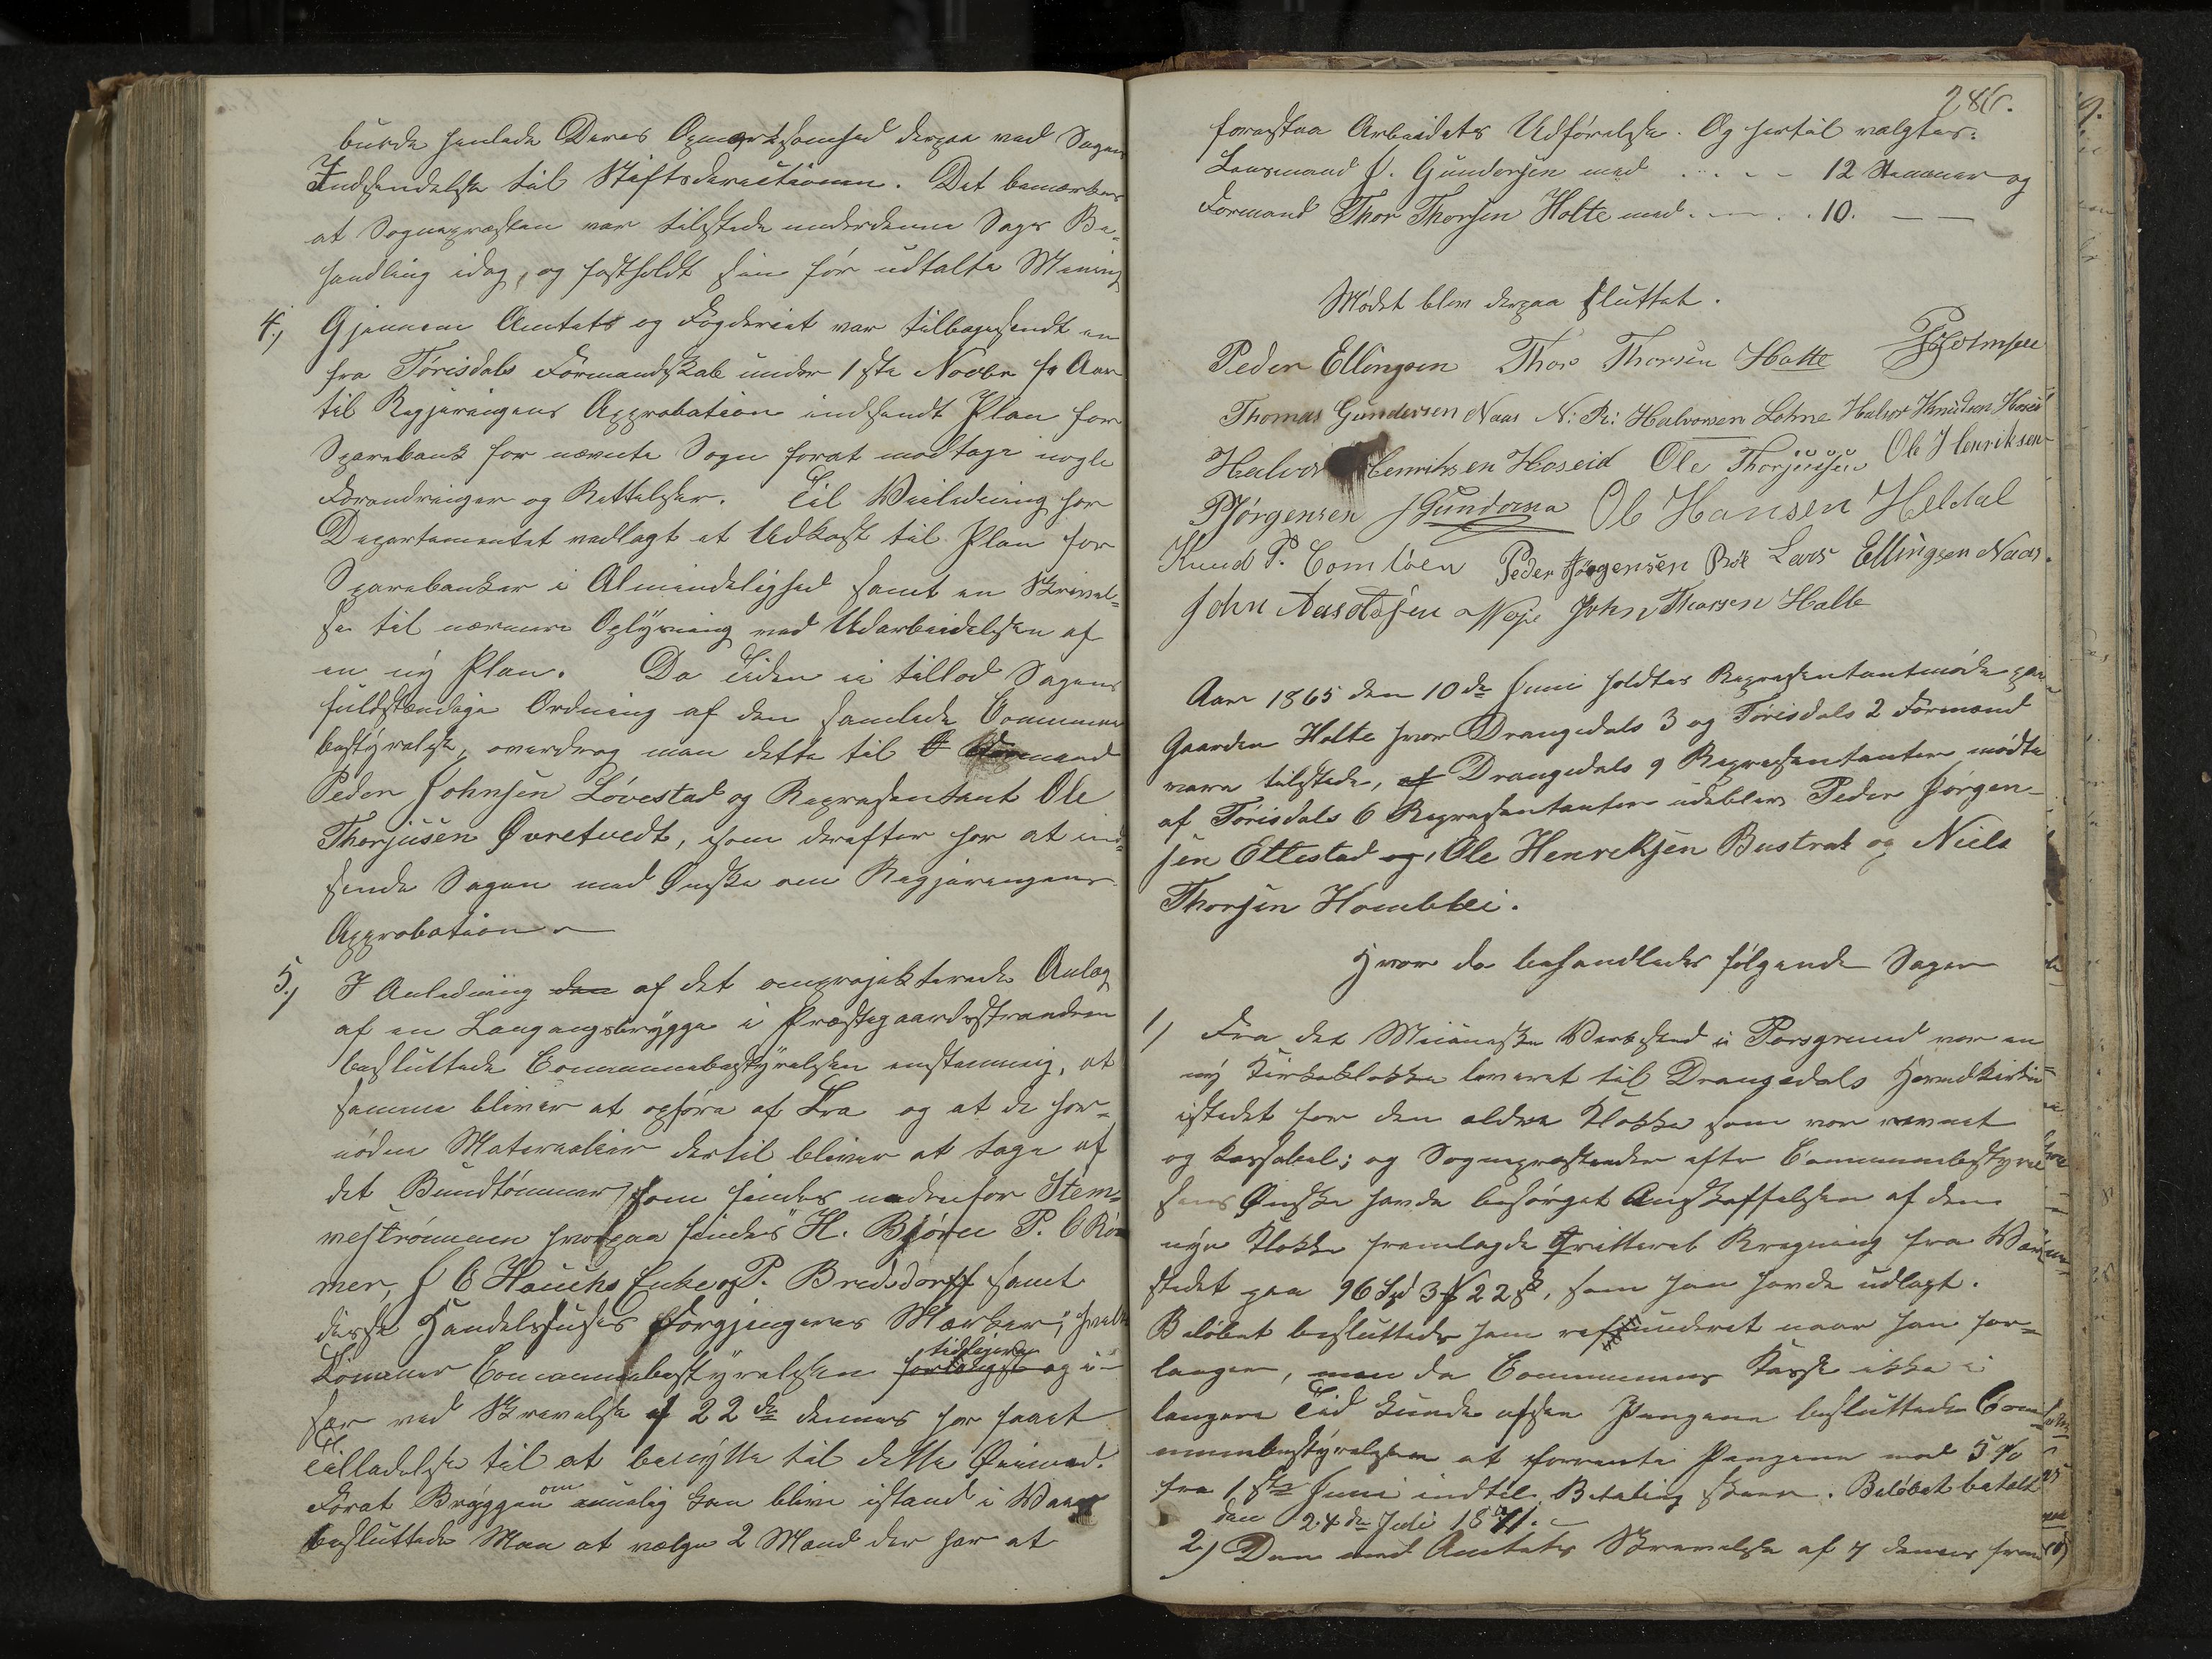 burde henlede Deres Opmærksomhed derpaa ved Sagens
Indsendelse til Stiftsdirectionen. Det bemærkes
at Sognepræsten var tilstede under denne Sags Be-
handling idag, og fastholdt sin før udtalte Mening
4.) Gjennem Amtet og Fogderiet var tilbagesendt en
fra Tørisdals Formandskab under 1ste Novbr f. Aar
til Regjeringens Approbation indsendt Plan for
Sparebank for nævnte Sogn forat modtage nogle
Forandringer og Rettelser. Til Veiledning har
Departementet vedlagt et Udkast til Plan for
Sparebanker i Almindelighed samt en Skrivel-
se til nærmere Oplysning ved Udarbeidelsen af
en ny Plan. Da Tiden ei tillod Sagens
fuldstændige Ordning af den samlede Commune
bestyrelse, overdrog man dette til Formand
Peder Johnsen Løvestad og Repræsentant Ole
Thorjusen Øvretvedt, som derefter har at ind-
sende Sagen med Ønske om Regjeringens
Approbation
5.) I Anledning den af det omprojekterede Anlæg
af en Langangsbrygge i Præstegaardsstranden
besluttede Communebestyrelsen enstemmig, at
samme bliver at opføre af Træ og at de for-
nødne Materialier dertil bliver at tage af
det Bundtømmer som findes nedenfor Stem-
mestrømmen hvorpaa findes H. Bjørn P. C Røm
mer, J C Hauchs Enke og P. Bredsdorff samt
disse Handelshuses Forgjængeres Mærker, hvilke
tidligere
Tømmer Communebestyrelsen forlængst og i-
før ved Skrivelse af 22de dennes har faaet
Tilladelse til at benytte til dette Øiemed.
om
Forat Bryggen muelig kan blive istand i Vaar
besluttede Man at vælge 2 Mænd der har at
286.
forestaa Arbeidets Udførelse. Og hertil valgtes.
Lensmand J. Gundersen med . . . - - 12 Stemmer og
Formand Thor Thorsen Holte med . - . . 10. - -
Mødet blev derpaa sluttet.
Peder Ellingsen Thor Thorsen Holte
Thomas Gundersen Naas N: R: Halvorsen Lohne Halvor Knudsen Hoseid
Halvor Henriksen Hoseid Ole Thorjusen Ole Henriksen
PJørgensen JGundersen Ole Hansen Heldal
Knud P. Peder Jørgensen Lars Ellingsen Naas.
John John Thorsen Holte
Aar 1865 den 10de Juni holdtes Repræsentantmøde paa
Gaarden Holte hvor Drangedals 3 og Tørisdals 2 Formænd
vare tilstede, af Drangedals 9 Repræsentanter mødte
af Tørisdals 6 Repræsentanter udeblev Peder Jørgen-
sen Ettestad og, Ole Henreksen Bustrak og Niels
Thorsen Homblei.
Hvor da behandledes følgende Sager
1) Fra det Værksted i Porsgrund var en
ny Kirkeklokke leveret til Drangedals Hovedkirke
istedet for den ældre Klokke som var revnet
og kasseabel; og Sognepræsten der efter Communebestyrel
sens Ønske havde besørget Anskaffelsen af den
nye Klokke fremlagde qvitteret Regning fra Værk-
stedet paa 96 Spd 3 22 s, som han havde udlagt.
Beløbet besluttedes ham refunderet naar han for-
langer, men da Communens Kasse ikke i
længere Tid kunde afsee Pengene besluttede Com-
munebestyrelsen at forrente Pengene med 5 %
fra 1ste Juni indtil Betaling skeer. Beløbet betalt
den 24de Juli 1871.
2) Den med Amtets Skrivelse af 7 dennes frem